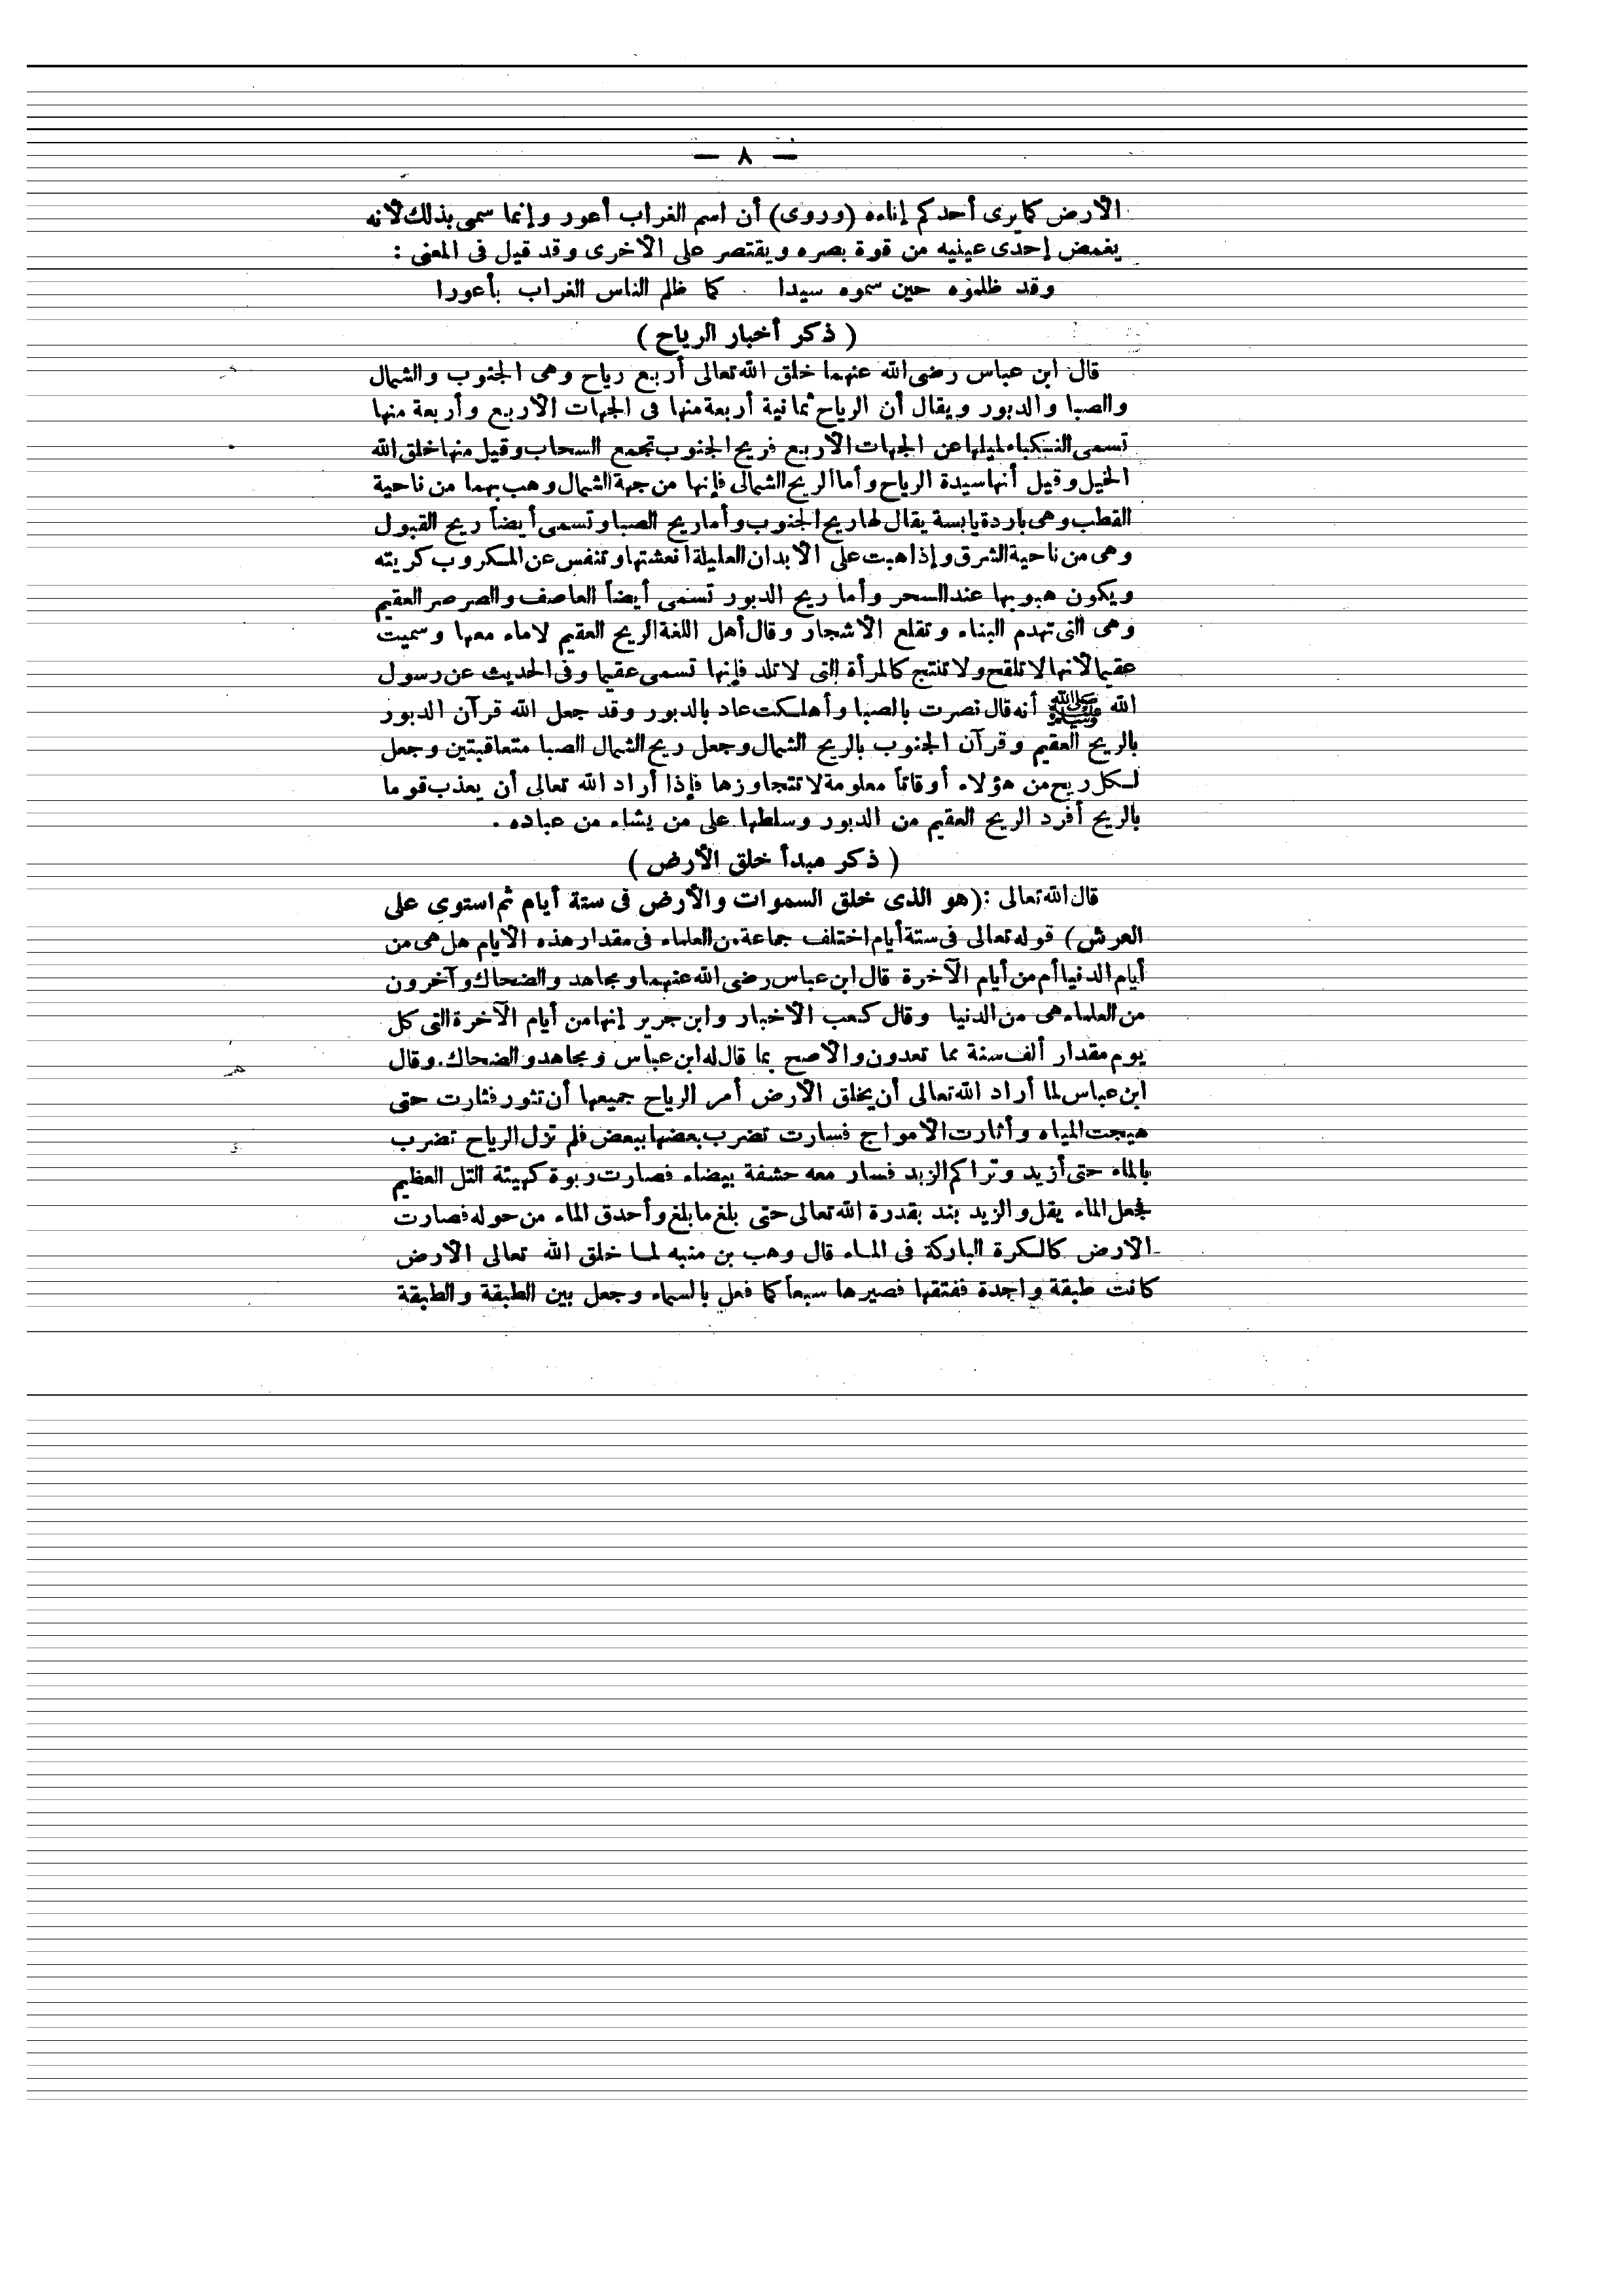 — ٨ —
الأرض كما يرى أحدكم إناءه (وروى) أن اسم الغراب أعور وإنما سمى بذلك لأنه
يغمض إحدى عينيه من قوة بصره ويقتصر على الأخرى وقد قيل فى المعنى :
وقد ظلموه حين سموه سيدا . كما ظلم الناس الغراب بأعورا
( ذكر أخبار الرياح )
قال ابن عباس رضى الله عنهما خلق الله تعالى أربع رياح وهى الجنوب والشمال
والصبا والدبور ويقال أن الرياح ثمانية أربعة منها فى الجهات الأربع وأربعة منها
تسمى النكباء لميلها عن الجهات الأربع فريح الجنوب تجمع السحاب وقيل منها خلق الله
الخيل وقيل أنها سيدة الرياح وأما الريح الشمالى فإنها من جهة الشمال وهب بهما من ناحية
القطب وهى باردة يابسة يقال لها ريح الجنوب وأما ريح الصبا وتسمى أيضاً ريح القبول
وهى من ناحية الشرق وإذا هبت على الأبدان العليلة انعشتها وتنفس عن المكروب كربته
ويكون هبوبها عند السحر وأما ريح الدبور تسمى أيضاً العاصف والصرصر العقيم
وهى التى تهدم البناء وتقلع الأشجار وقال أهل اللغة الريح العقيم لا ماء معها وسميت
عقيما لأنها لا تلقح ولا تنتج كالمرأة التى لا تلد فإنها تسمى عقيما وفى الحديث عن رسول
الله ﷺ أنه قال نصرت بالصبا وأهلكت عاد بالدبور وقد جعل الله قرآن الدبور
بالريح العقيم وقرآن الجنوب بالريح الشمال وجعل ريح الشمال الصبا متعاقبتين وجعل
لكل ريح من هؤلاء أوقاتاً معلومة لا تتجاوزها فإذا أراد الله تعالى أن يعذب قوما
بالريح أفرد الريح العقيم من الدبور وسلطها على من يشاء من عباده .
( ذكر مبدأ خلق الأرض )
قال الله تعالى :(هو الذى خلق السموات والأرض فى ستة أيام ثم استوى على
العرش) قوله تعالى فى ستة أيام اختلف جماعة من العلماء فى مقدار هذه الأيام هل هى من
أيام الدنيا أم من أيام الآخرة قال ابن عباس رضى الله عنهما ومجاهد والضحاك وآخرون
من العلماء هى من الدنيا وقال كعب الأخبار وابن جرير إنها من أيام الآخرة التى كل
يوم مقدار ألف سنة مما تعدون والأصح بما قال له ابن عباس ومجاهد والضحاك. وقال
ابن عباس لما أراد الله تعالى أن يخلق الأرض أمر الرياح جميعها أن تثور فثارت حتى
هيجت المياه وأثارت الأمواج فسارت تضرب بعضها ببعض فلم تزل الرياح تضرب
بالماء حتى أزيد وتراكم الزبد فسار معه حشفة بيضاء فصارت ربوة كهيئة التل العظيم
فجعل الماء يقل والزيد بند بقدرة الله تعالى حتى بلغ ما بلغ وأحدق الماء من حوله فصارت
الأرض كالكرة الباركة فى الماء قال وهب بن منبه لما خلق الله تعالى الأرض
كانت طبقة واحدة ففتقها فصيرها سبعاً كما فعل بالسماء وجعل بين الطبقة والطبقة